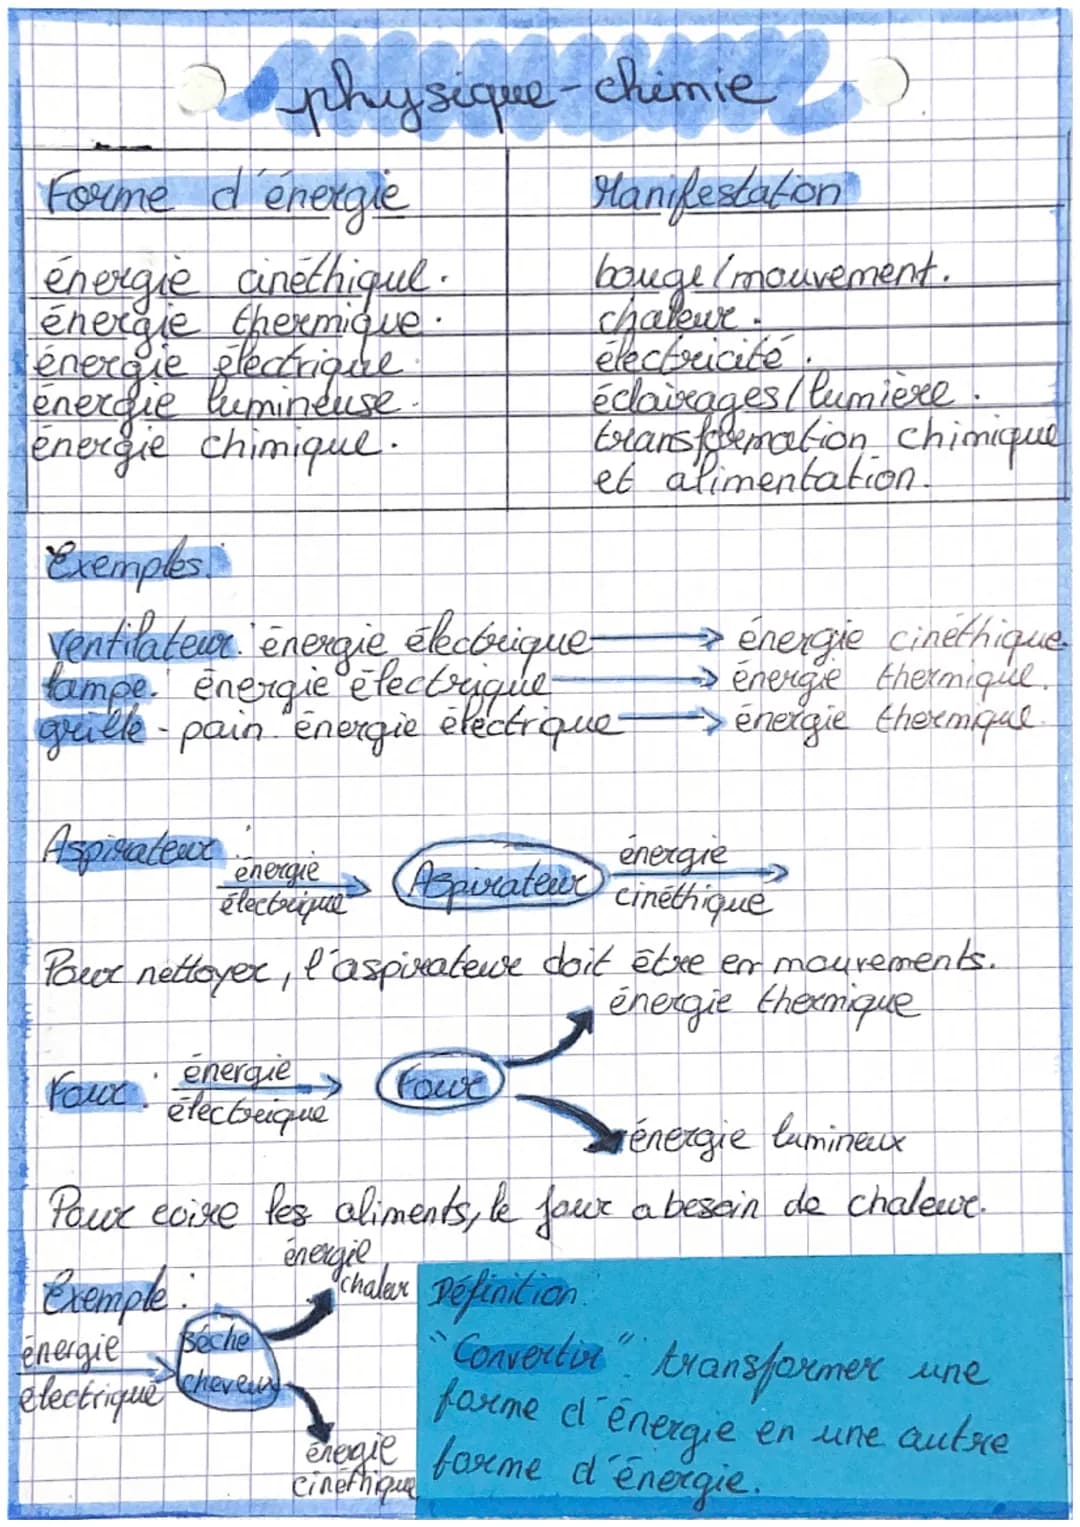 physique-chimie
Forme d'énergie Manifestation
énergie cinéthique. bouge/mouvement.
énergie thermique. chaleur.
énergie électrique électricité.
énergie lumineuse. éclairages/lumière.
énergie chimique. transformation chimique
et alimentation.
Exemples:
ventilateur: énergie électrique → énergie cinéthique.
lampe: énergie électrique → énergie thermique.
grille-pain: énergie électrique → énergie thermique.
Aspirateur: énergie électrique → Aspirateur énergie cinéthique →
Pour nettoyer, l'aspirateur doit être en mouvements.
énergie thermique
Four: énergie électrique → Four
énergie lumineux
Pour coire les aliments, le four a besoin de chaleur.
Exemple:
énergie
chaleur
énergie
électrique
Séche
cheveux
énergie
cinéthique
Définition:
"Convertir": transformer une
forme d'énergie en une autre
forme d'énergie.